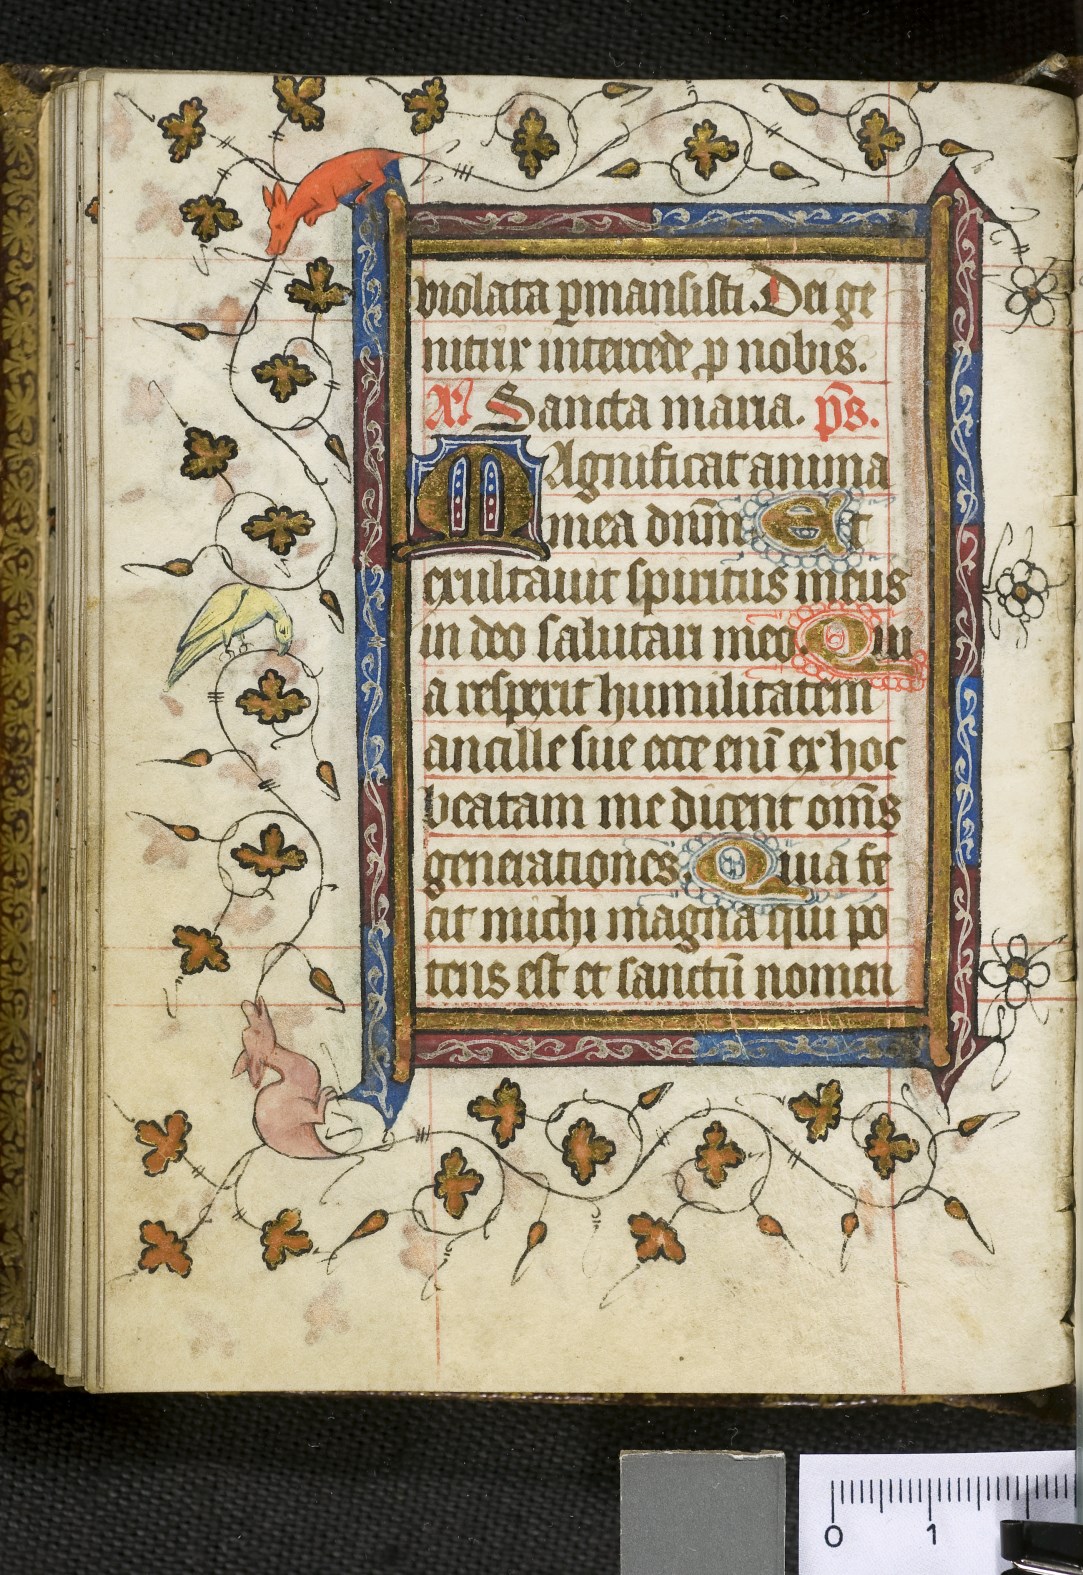 violata ꝑmansisti. Dei ge
nitrix intercede ꝓ nobis.
An̄ Sancta maria. p̄s.
MAgnificat anima
mea dn̄m Et
exultauit spiritus meus
in deo salutari meo. Qui
a respexit humilitatem
ancille sue ecce eni̅ ex hoc
beatam me dicent om̄s
generationes. Quia fe
cit michi magna qui po
tens est et sanctu̅ nomen
0 1